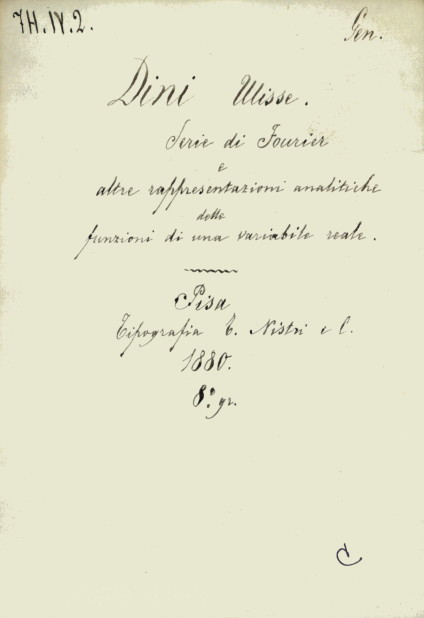 7H.IV.2.
Gen.
Dini Ulisse.
Serie di Fourier
e
altre rappresentazioni analitiche
delle
funzioni di una variabile reale.
Pisa
Tipografia T. Nistri e C.
1880.
8.° gr.
C